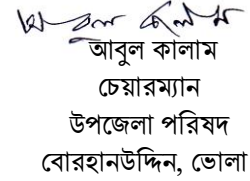 আবুল কালাম
আবুল কালাম
চেয়ারম্যান
উপজেলা পরিষদ
বোরহানউদ্দিন, ভোলা